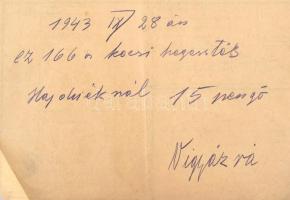 1943 IX/28 án
ez 166 os kocsi hegesztés
Hajduéknál 15 pengő
Vigyáz rá